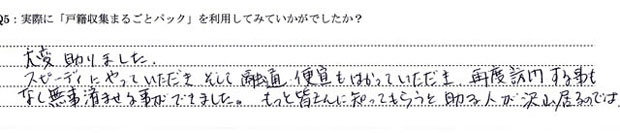 Q5：実際に「戸籍収集まるごとパック」を利用してみていかがでしたか？
大変助りました。
スピーディにやっていただき そして 融通、便宜もはかっていただき 再度訪門する事も
なく無事済ませる事ができました。もっと皆さんに知ってもらうと助る人が沢山居るのでは